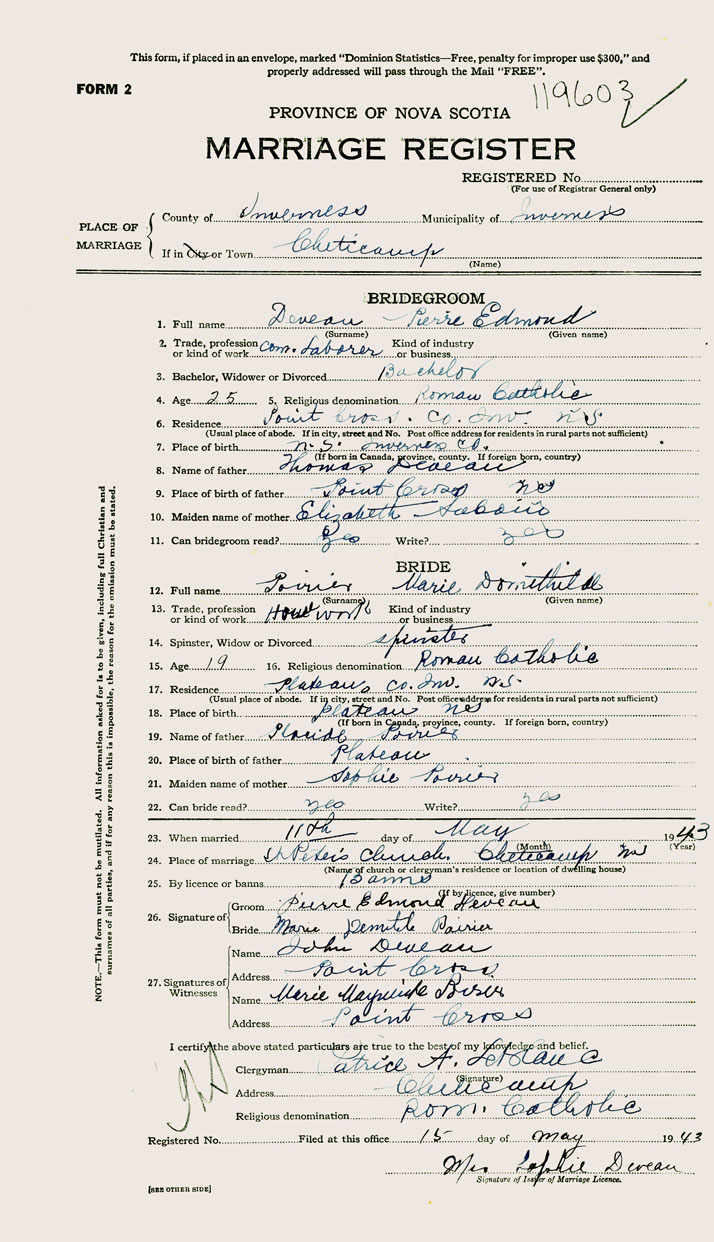 This form, if placed in an envelope, marked “Dominion Statistics—Free, penalty for improper use $300,” and
properly addressed will pass through the Mail “FREE”.
FORM 2
119603
PROVINCE OF NOVA SCOTIA
MARRIAGE REGISTER
REGISTERED No.
(For use of Registrar General only)
PLACE OF MARRIAGE
County of Inverness Municipality of Inverness
If in City or Town Cheticamp
(Name)
BRIDEGROOM
1. Full name Deveau Pierre Edmond
(Surname) (Given name)
2. Trade, profession or kind of work Com. Laborer Kind of industry or business
3. Bachelor, Widower or Divorced Bachelor
4. Age 25 5. Religious denomination Roman Catholic
6. Residence Point Cross. Co. Inv. N.S.
(Usual place of abode. If in city, street and No. Post office address for residents in rural parts not sufficient)
7. Place of birth N.S. Inverness Co.
(If born in Canada, province, county. If foreign born, country)
8. Name of father Thomas Deveau
9. Place of birth of father Point Cross NS
10. Maiden name of mother Elizabeth
11. Can bridegroom read? yes Write? yes
BRIDE
12. Full name Poirier Marie Domithilde
(Surname) (Given name)
13. Trade, profession or kind of work House work Kind of industry or business
14. Spinster, Widow or Divorced spinster
15. Age 19 16. Religious denomination Roman Catholic
17. Residence Plateau Co. Inv. N.S.
(Usual place of abode. If in city, street and No. Post office address for residents in rural parts not sufficient)
18. Place of birth Plateau NS
(If born in Canada, province, county. If foreign born, country)
19. Name of father Placide Poirier
20. Place of birth of father Plateau
21. Maiden name of mother Sophie Poirier
22. Can bride read? yes Write? yes
23. When married 11th day of May 1943
(Month) (Year)
24. Place of marriage St Peter's Church. Cheticamp NS
(Name of church or clergyman's residence or location of dwelling house)
25. By licence or banns Banns
(If by licence, give number)
26. Signature of
Groom Pierre Edmond Deveau
Bride Marie Demitile Poirier
27. Signatures of Witnesses
Name John Deveau
Address Point Cross
Name Marie Poirier
Address Point Cross
I certify the above stated particulars are true to the best of my knowledge and belief.
Clergyman Patrice A. LeBlanc
(Signature)
Address Cheticamp
Religious denomination Rom. Catholic
Registered No. Filed at this office 15 day of May 1943
Mrs Sophie Deveau
Signature of Issuer of Marriage Licence.
[SEE OTHER SIDE]
NOTE.—This form must not be mutilated. All information asked for is to be given, including full Christian and
surnames of all parties, and if for any reason this is impossible, the reason for the omission must be stated.